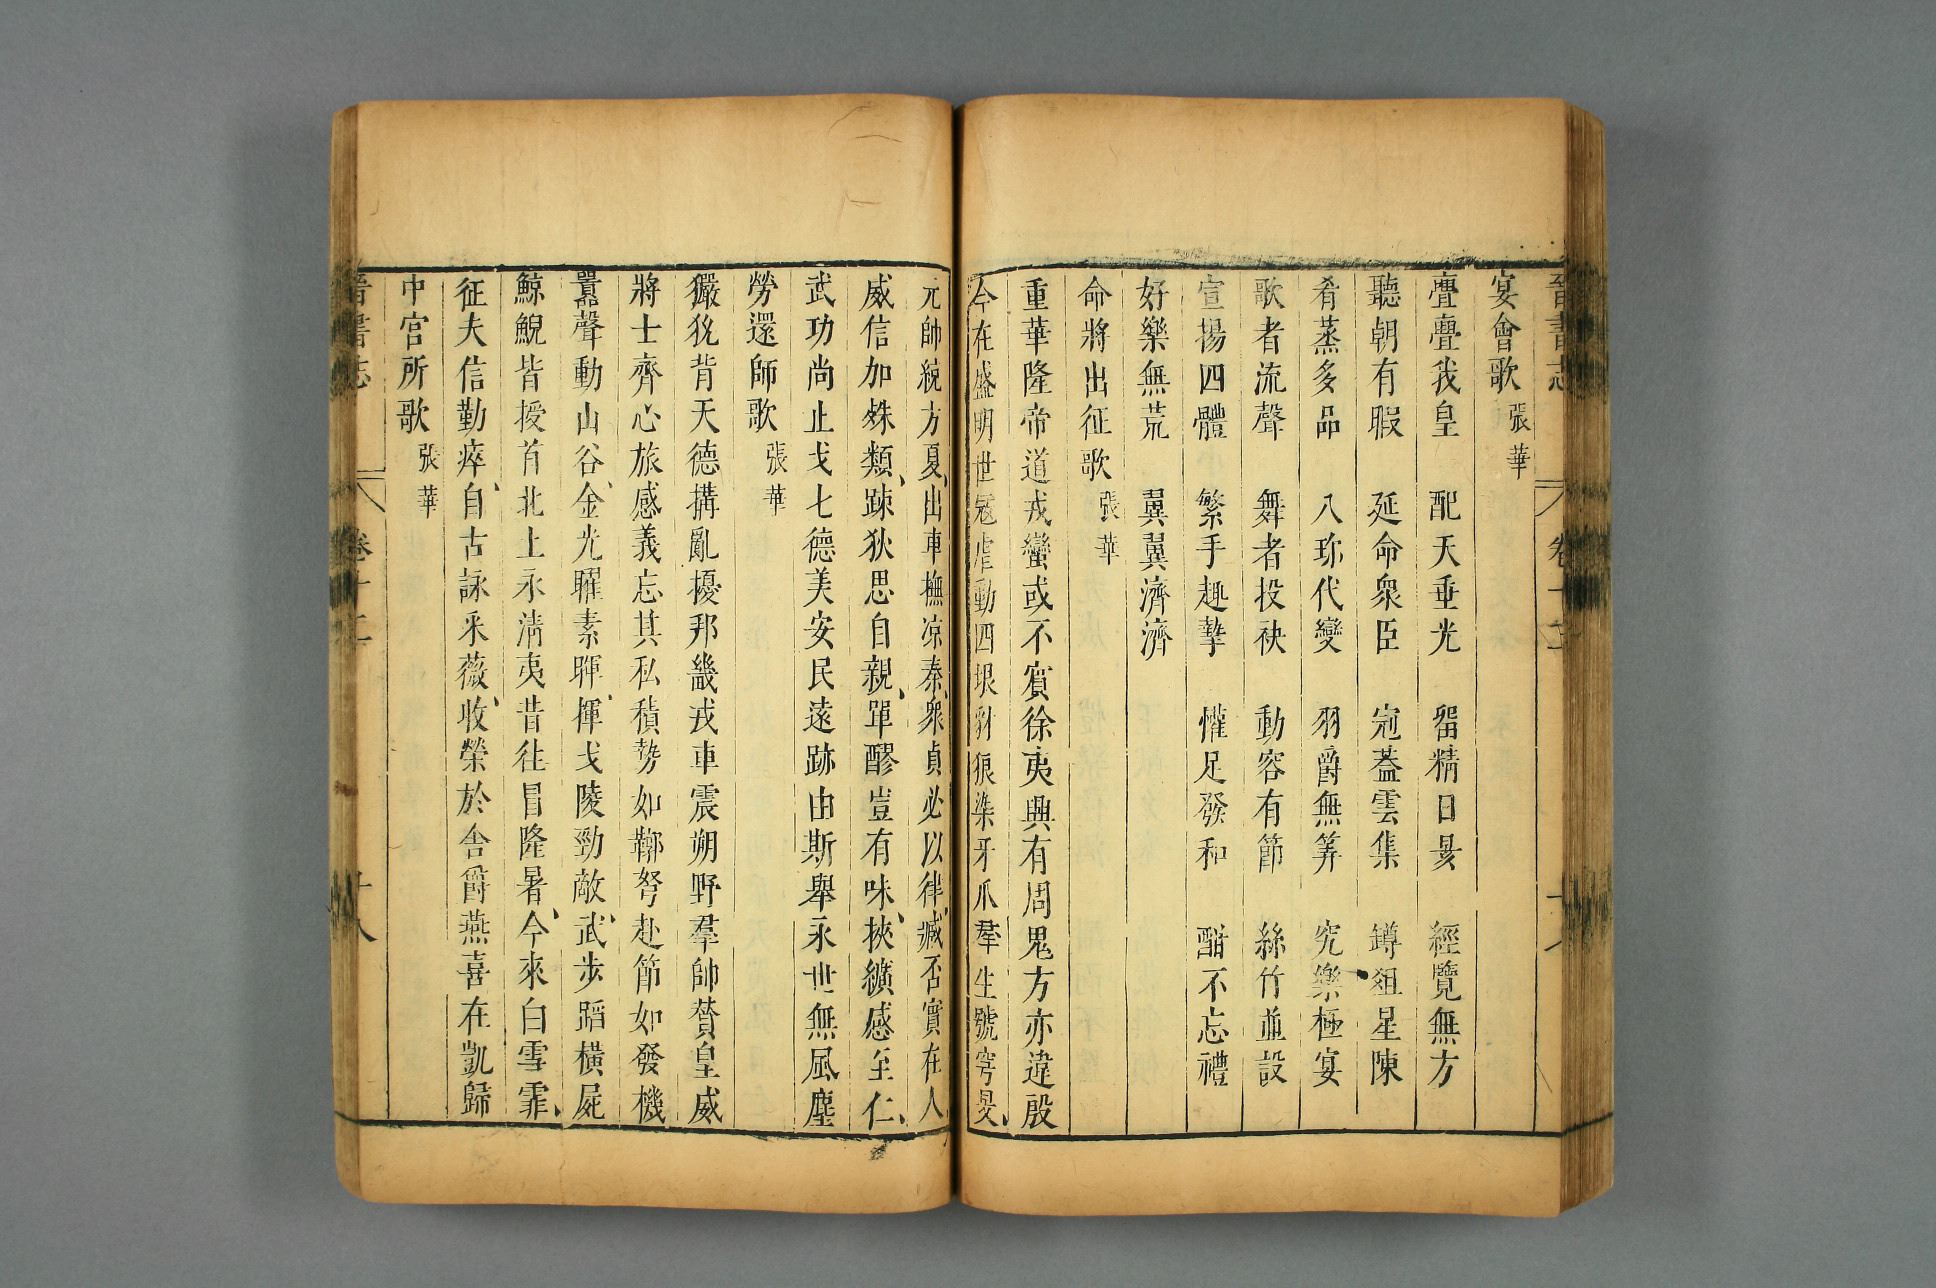 晉書志　卷十二　十八
宴會歌　張華
亹亹我皇　配天垂光　留精日昃　經覽無方
聽朝有暇　延命衆臣　冠蓋雲集　罇俎星陳
肴蒸多品　八珎代變　羽爵無筭　究樂極宴
歌者流聲　舞者投袂　動容有節　絲竹並設
宣揚四體　繁手趣摯　懽足發和　酣不忘禮
好樂無荒　翼翼濟濟
命將出征歌　張華
重華隆帝道戎蠻或不賓徐夷興有周鬼方亦違殷
今在盛明世寇虐動四垠豺狼染牙爪羣生號穹旻、
元帥統方夏、出車撫凉秦、衆貞必以律、臧否實在人
威信加殊類、疎狄思自親、單醪豈有味、挾纊感至仁、
武功尚止戈七德美安民遠跡由斯舉永世無風塵
勞還師歌　張華
玁狁背天德搆亂擾邦畿戎車震朔野羣帥賛皇威
將士齊心旅感義忘其私積勢如鞹弩赴節如發機
嚚聲動山谷、金光曜素暉、揮戈陵勁敵、武步蹈橫屍
鯨鯢皆授首北土永淸夷昔徃冒隆暑、今來白雪霏、
征夫信勤瘁、自古詠采薇、收榮於舎爵燕喜在凱歸
中宮所歌　張華
晉書志　卷十二　十八